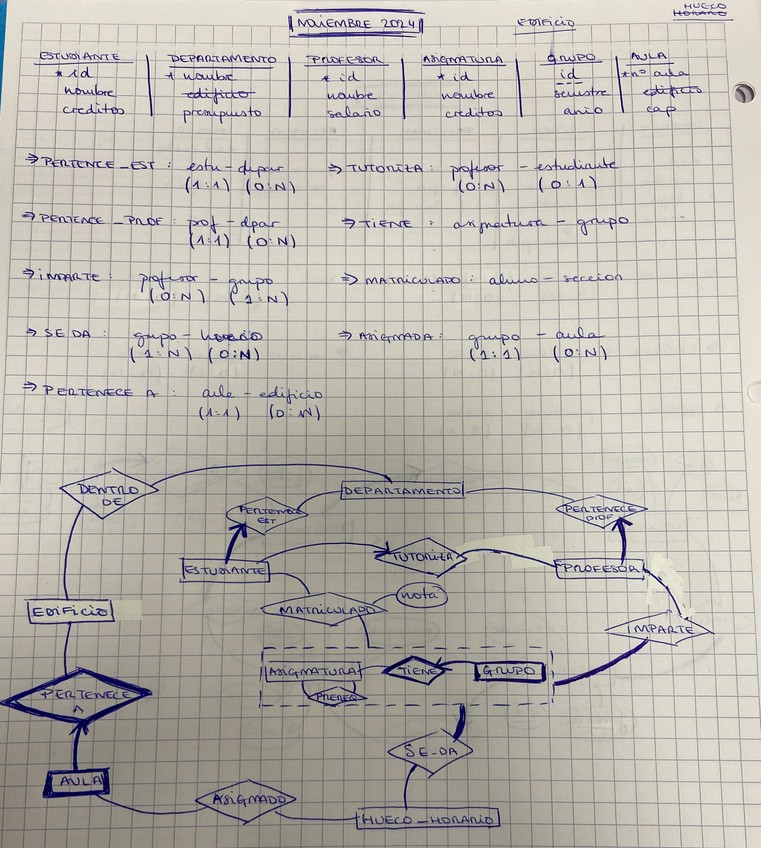 NOVIEMBRE 2024
EDIFICIO
HUECO
HORARIO
ESTUDIANTE
* id
nombre
creditos
DEPARTAMENTO
* nombre
edificio
presupuesto
PROFESOR
* id
nombre
salario
ASIGNATURA
* id
nombre
creditos
GRUPO
id
semestre
anio
AULA
* nº aula
edificio
cap
⇒ PERTENCE_EST : estu - depar
(1:1) (0:N)
⇒ TUTORIZA : profesor - estudiante
(0:N) (0:1)
⇒ PERTENCE _ PROF : prof - dpar
(1:1) (0:N)
⇒ TIENE : asignatura - grupo
⇒ IMPARTE : profesor - grupo
(0:N) (1:N)
⇒ MATRICULADO : alumno - seccion
⇒ SE DA : grupo - horario
(1:N) (0:N)
⇒ ASIGNADA : grupo - aula
(1:1) (0:N)
⇒ PERTENECE A : aula - edificio
(1:1) (0:N)
DENTRO
DE
DEPARTAMENTO
PERTENECE
EST
PERTENECE
PROF
TUTORIZA
ESTUDIANTE
PROFESOR
MATRICULADO
nota
EDIFICIO
IMPARTE
ASIGNATURA
TIENE
GRUPO
PREREQ
PERTENECE
A
SE-DA
AULA
ASIGNADO
HUECO_HORARIO